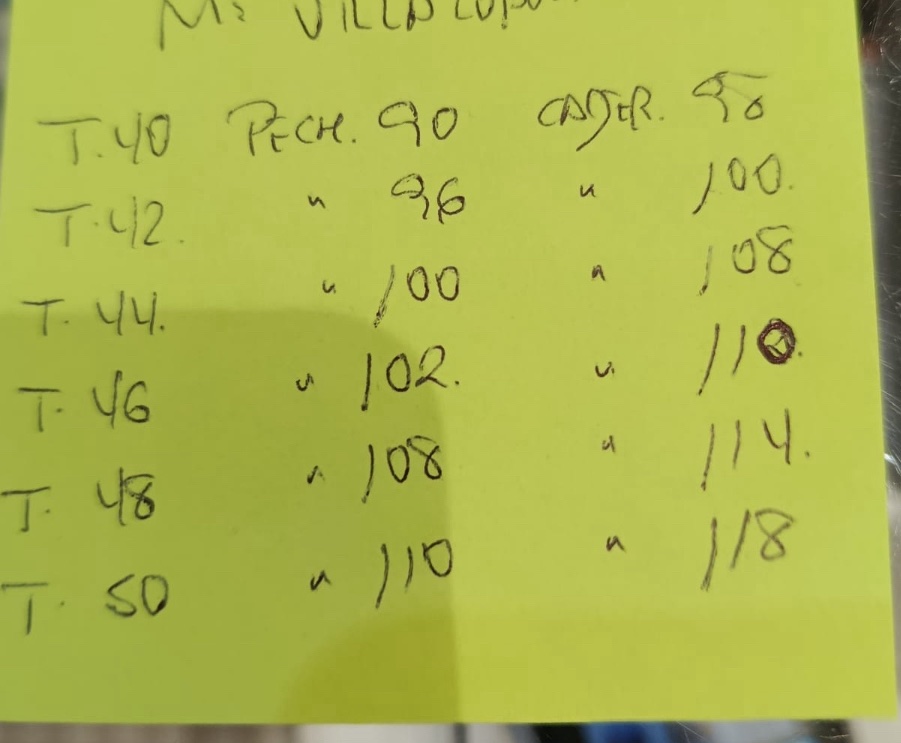 T.40 PECH. 90 CADER. 98
T.42. " 96 " 100.
T. 44. " 100 " 108
T. 46 " 102. " 110.
T. 48 " 108 " 114.
T. 50 " 110 " 118